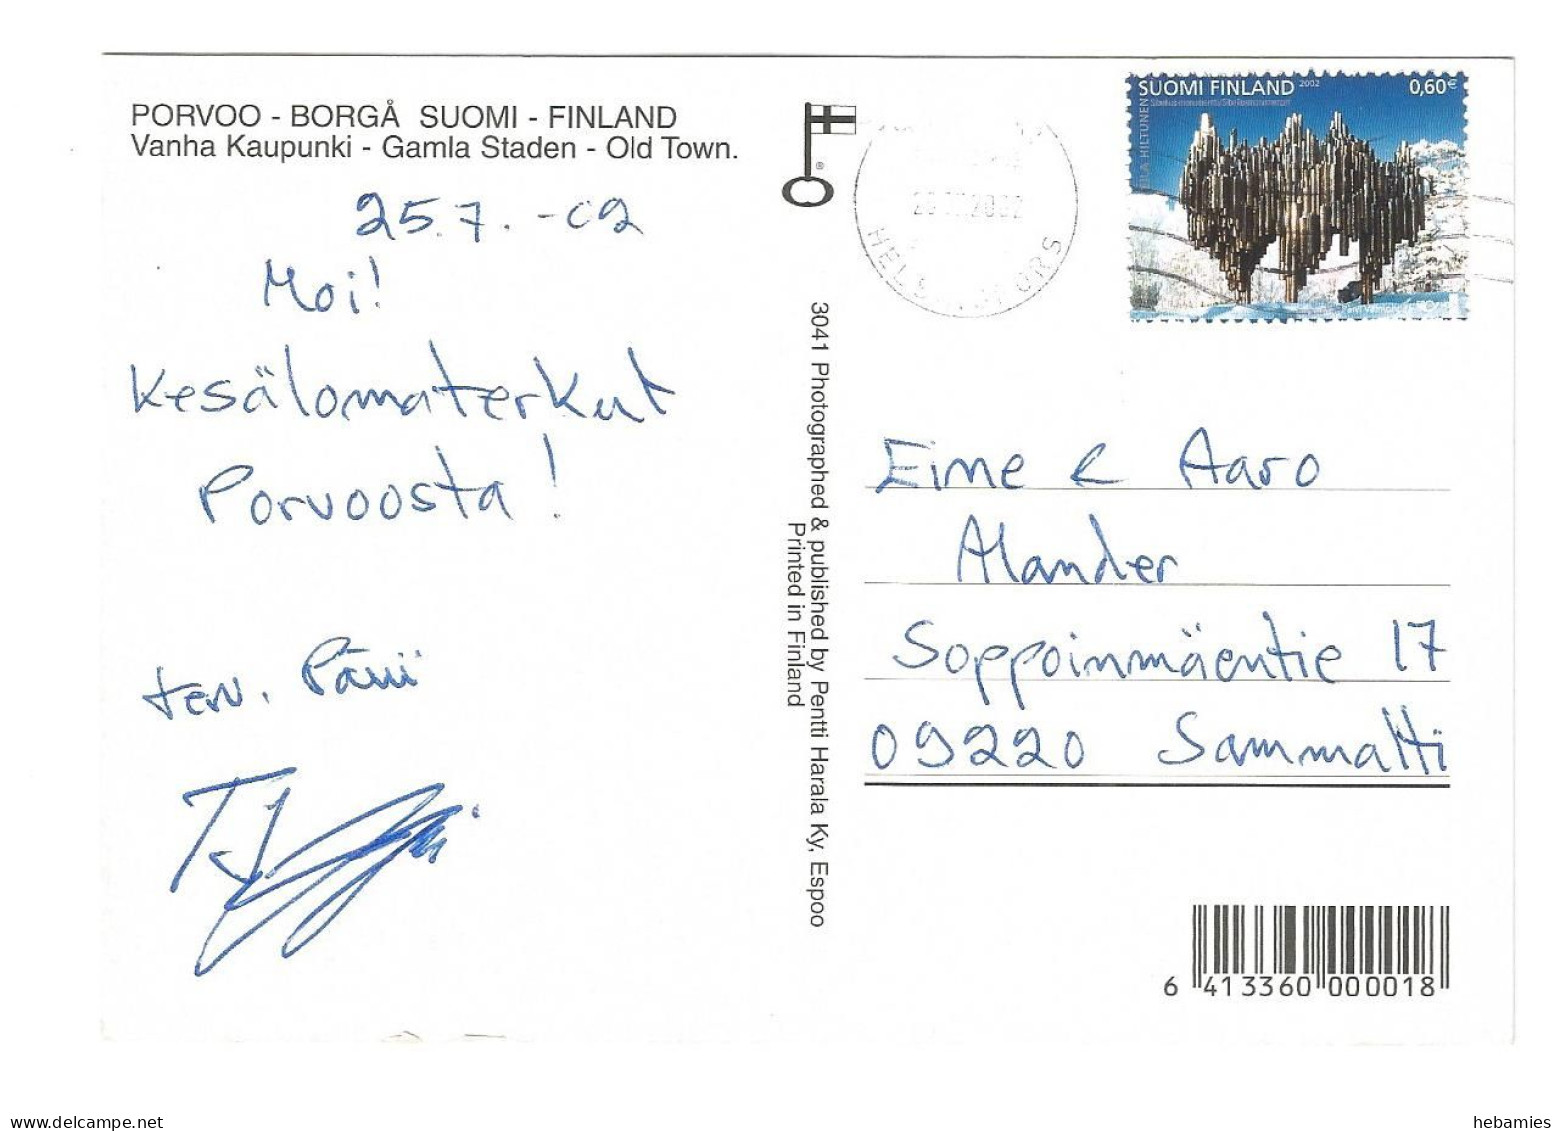 PORVOO - BORGÅ SUOMI - FINLAND
Vanha Kaupunki - Gamla Staden - Old Town.
25.7. -02
Moi!
Kesälomaterkut
Porvoosta!
terv. Päivi
®
3041 Photographed & published by Pentti Harala Ky, Espoo
Printed in Finland
SUOMI FINLAND 2002 0,60€
EILA HILTUNEN
Eine & Aaro
Alander
Soppoinmäentie 17
09220 Sammatti
6 413360 000018
hebamies